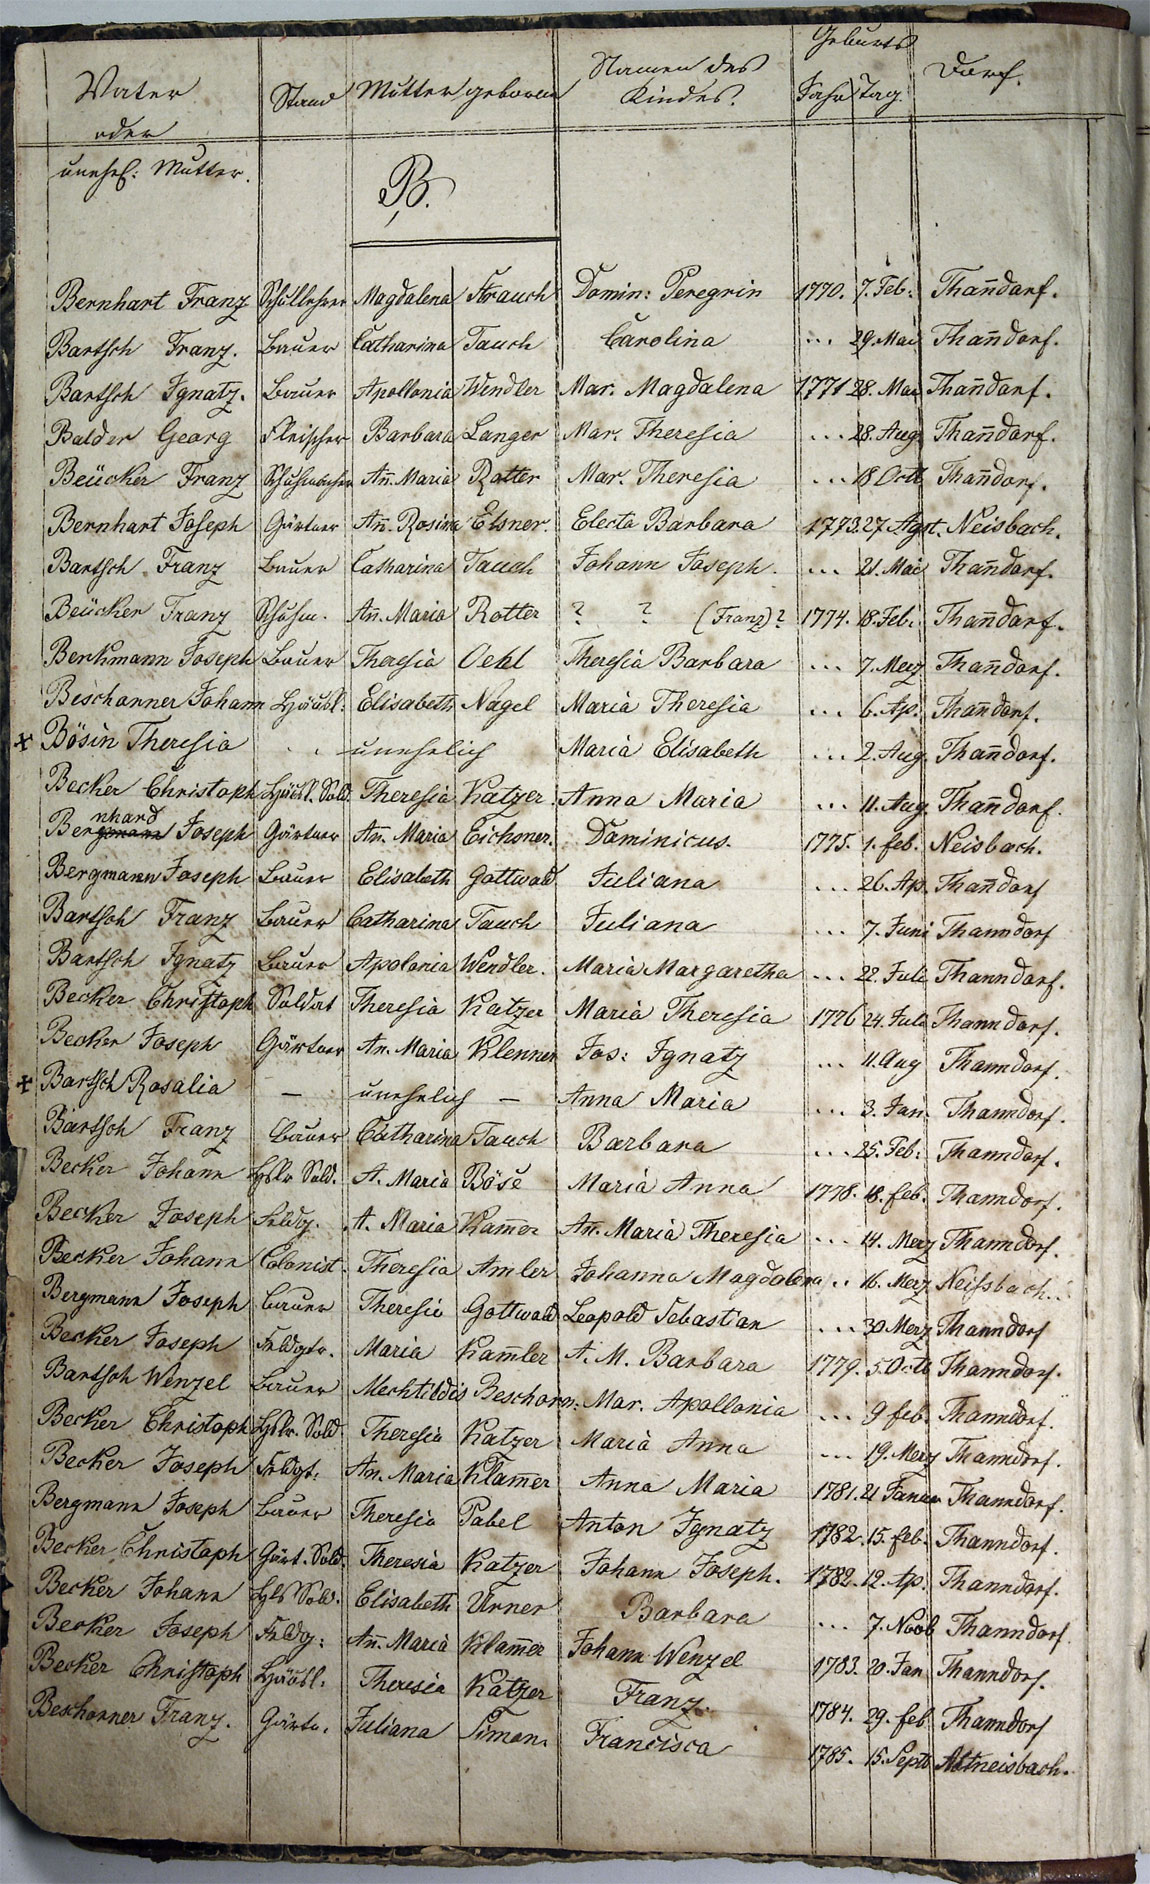 Vater oder unehel: Mutter. Stand Mutter geborene Namen des Kindes. Geburts Jahr Tag. Dorf.
B.
Bernhart Franz Schullehrer Magdalena Strauch Domin: Peregrin 1770. 7. Feb: Than̄dorf.
Bartsch Franz. Bauer Catharina Tauch Carolina ... 29. Mai Than̄dorf.
Bartsch Ignatz. Bauer Apollonia Wendler Mar. Magdalena 1771 28. Mai Than̄dorf.
Balder Georg Fleischer Barbara Langer Mar. Theresia ... 28. Aug. Than̄dorf.
Beücker Franz Schuhmacher An̄. Maria Rotter Mar. Theresia ... 18 Octb Than̄dorf.
Bernhart Joseph Gärtner An̄. Rosina Elsner. Electa Barbara 1773. 27. Agst. Neisbach.
Bartsch Franz Bauer Catharina Tauch Johann Joseph. ... 21. Mai Than̄dorf.
Beücker Franz Schuhm. An̄. Maria Rotter ? ? (Franz)? 1774. 18. Feb: Than̄dorf.
Berkmann Joseph Bauer Theresia Oehl Theresia Barbara ... 7. Merz Than̄dorf.
Beschorner Johann Häusl: Elisabeth Nagel Maria Theresia ... 6. Ap. Than̄dorf.
Bösin Theresia . . unehelich Maria Elisabeth ... 2. Aug. Than̄dorf.
Becker Christoph Häusl. Sold. Theresia Katzer Anna Maria ... 11. Aug. Than̄dorf.
Bernhard Joseph Gärtner An̄. Maria Eichsner. Dominicus. 1775. 1. feb. Neisbach.
Bergmann Joseph Bauer Elisabeth Gottwald Juliana ... 26. Ap. Than̄dorf
Bartsch Franz Bauer Catharina Tauch Juliana ... 7. Juni Thanndorf
Bartsch Ignatz Bauer Apolonia Wendler. Maria Margaretha ... 22. Juli Thanndorf.
Becker Christoph Soldat Theresia Katzer Maria Theresia 1776 24. Juli Thanndorf.
Becker Joseph Gärtner An. Maria Klenner Jos: Ignatz ... 11. Aug Thanndorf.
Bartsch Rosalia – unehelich – Anna Maria ... 3. Jan. Thanndorf.
Bartsch Franz Bauer Catharina Tauch Barbara ... 25. Feb: Thanndorf.
Becker Johann Hslr Sold. A. Maria Böse Maria Anna 1778. 18. feb. Thanndorf.
Becker Joseph Feldg. A. Maria Kam̄er An̄. Maria Theresia ... 14. Merz Thanndorf.
Becker Johann Colonist. Theresia Amler Johanna Magdalena .. 16. Merz Neisbach.
Bergmann Joseph Bauer Theresia Gottwald Leopold Sebastian ... 30 Merz Thanndorf
Becker Joseph Feldgtr. Maria Kam̄ler A. M. Barbara 1779. 5 Octb Thanndorf.
Bartsch Wenzel Bauer Mechtildis Beschorn: Mar. Apollonia ... 9 feb. Thanndorf.
Becker Christoph Hslr. Sold. Theresia Katzer Maria Anna ... 19. Merz Thanndorf.
Becker Joseph Feldgt: An. Maria Klam̄er Anna Maria 1781. 21 Januar Thanndorf.
Bergmann Joseph Bauer Theresia Pabel Anton Ignatz 1782. 15. feb. Thanndorf.
Becker Christoph Gärt. Sold. Theresia Katzer Johann Joseph. 1782. 12. Ap. Thanndorf.
Becker Johann Hsl Sold. Elisabeth Urner Barbara ... 7. Novb Thanndorf.
Becker Joseph Feldg: An̄. Maria Klam̄er Johann Wenzel 1783. 20. Jan Thanndorf.
Becker Christoph Häusl: Theresia Katzer Franz. 1784. 29. feb Thanndorf
Beschorner Franz. Gärtn. Juliana Simon. Francisca 1785. 15. Septb Altneisbach.